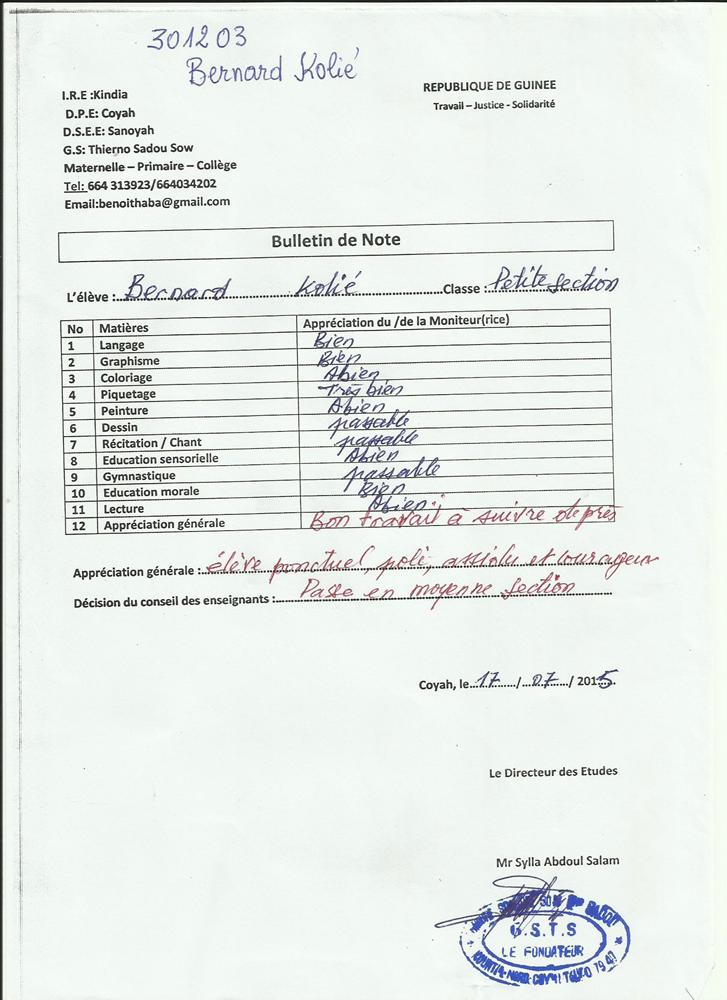 301203
Bernard Kolié
I.R.E :Kindia
D.P.E: Coyah
D.S.E.E: Sanoyah
G.S: Thierno Sadou Sow
Maternelle – Primaire – Collège
Tel: 664 313923/664034202
Email:benoithaba@gmail.com
REPUBLIQUE DE GUINEE
Travail – Justice - Solidarité
Bulletin de Note
L'élève : Bernard Kolié Classe : Petite section
No Matières Appréciation du /de la Moniteur(rice)
1 Langage Bien
2 Graphisme Bien
3 Coloriage Abien
4 Piquetage Très bien
5 Peinture Abien
6 Dessin passable
7 Récitation / Chant passable
8 Education sensorielle Abien
9 Gymnastique passable
10 Education morale Bien
11 Lecture Abien
12 Appréciation générale Bon travail à suivre de près
Appréciation générale : élève ponctuel, poli, assidu et courageux
Décision du conseil des enseignants : Passe en moyenne section
Coyah, le 17 / 07 / 2015
Le Directeur des Etudes
Mr Sylla Abdoul Salam
G.S.T.S
LE FONDATEUR